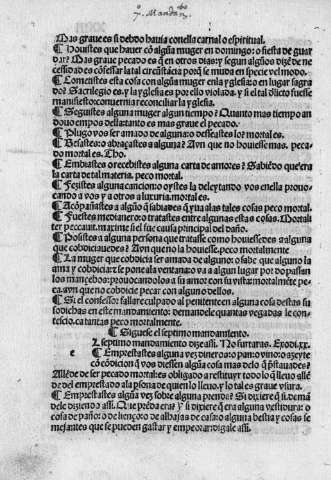 7. Mandam.to
Mas graue es si deudo hauia con ella carnal o espiritual.
¶ Houistes que hauer cõ algũa muger en domingo: o fiesta de guar
dar? Mas graue pecado es q̃ en otros dias: y segun algũos dizẽ de ne
cessidad es cõfessar la tal circũstãcia porq̃ se muda en specie vel modo.
¶ Cometistes esta cosa con algũa muger en la yglesia: o en lugar sagra
do? Sacrilegio es. y la yglesia es por ello violada. y si el tal dlicto fuesse
manifiesto: conuernia reconciliar la yglesia.
¶ Seguistes alguna muger algun tiempo? Quanto mas tiempo an
douo empos della: tanto es mas graue el pecado.
¶ Plugo vos ser amado de alguna: o desseastes lo? mortal es.
¶ Besastes: o abraçastes a alguna? Aun que no houiesse mas. peca
do mortal es. Tho.
¶ Embiastes o recebistes alguna carta de amores? Sabiẽdo que era
la carta de tal materia. peco mortal.
¶ Fezistes alguna cancion: o oystes la deleytando vos en ella prouo
cando a vos y a otros a luxuria. mortal es.
¶ Acõpañastes a algũo q̃ sabiades q̃ yua a las tales cosas peco mortal.
¶ Fuestes medianero: o tratastes entre algunas estas cosas. Mortali
ter peccauit. maxime si el fue causa principal del daño.
¶ Posistes a alguna persona que tratasse como houiessedes a alguna
que cobdiciauades? Aun que no la houiesse. peco mortalmente
¶ La muger que cobdicia ser amada de alguno: o sabe que alguno la
ama y cobdicia: z se pone a la ventana: o va a algun lugar por do passan
los mancebos: prouocandolos a su amor con su vista: mortalmẽte pe
ca. aun que no cobdicie pecar con alguno dellos.
¶ Si el confessor fallare culpado al penitente en alguna cosa destas su
sodichas en este mandamiento: demandele quantas vegadas le con
tescio. ca tantas peco mortalmente.
¶ Siguese el septimo mandamiento.
L septimo mandamiento dize assi. No furtaras. Exodi. xx.
e
¶ Emprestastes alguna vez dineros: o pan: o vino: o azeyte
cõ cõdicion q̃ vos diessen algũa cosa mas delo q̃ p̃stauades?
Allẽde de ser pecado mortal: es obligado a restituyr todo lo q̃ lleuo allẽ
de del emprestado ala p̃sona de quien lo lleuo. y lo tal es graue vsura.
¶ Emprestastes algũa vez sobre alguna prenda? Si dixere q̃ si. deman
dele diziendo assi. Que prẽda era? y si dixere q̃ era alguna vestidura: o
cosa de paño: o de lienço: o de alhajas de casa: o alguna bestia y cosas se
mejantes que se pueden gastar y emperoar: digale assi.